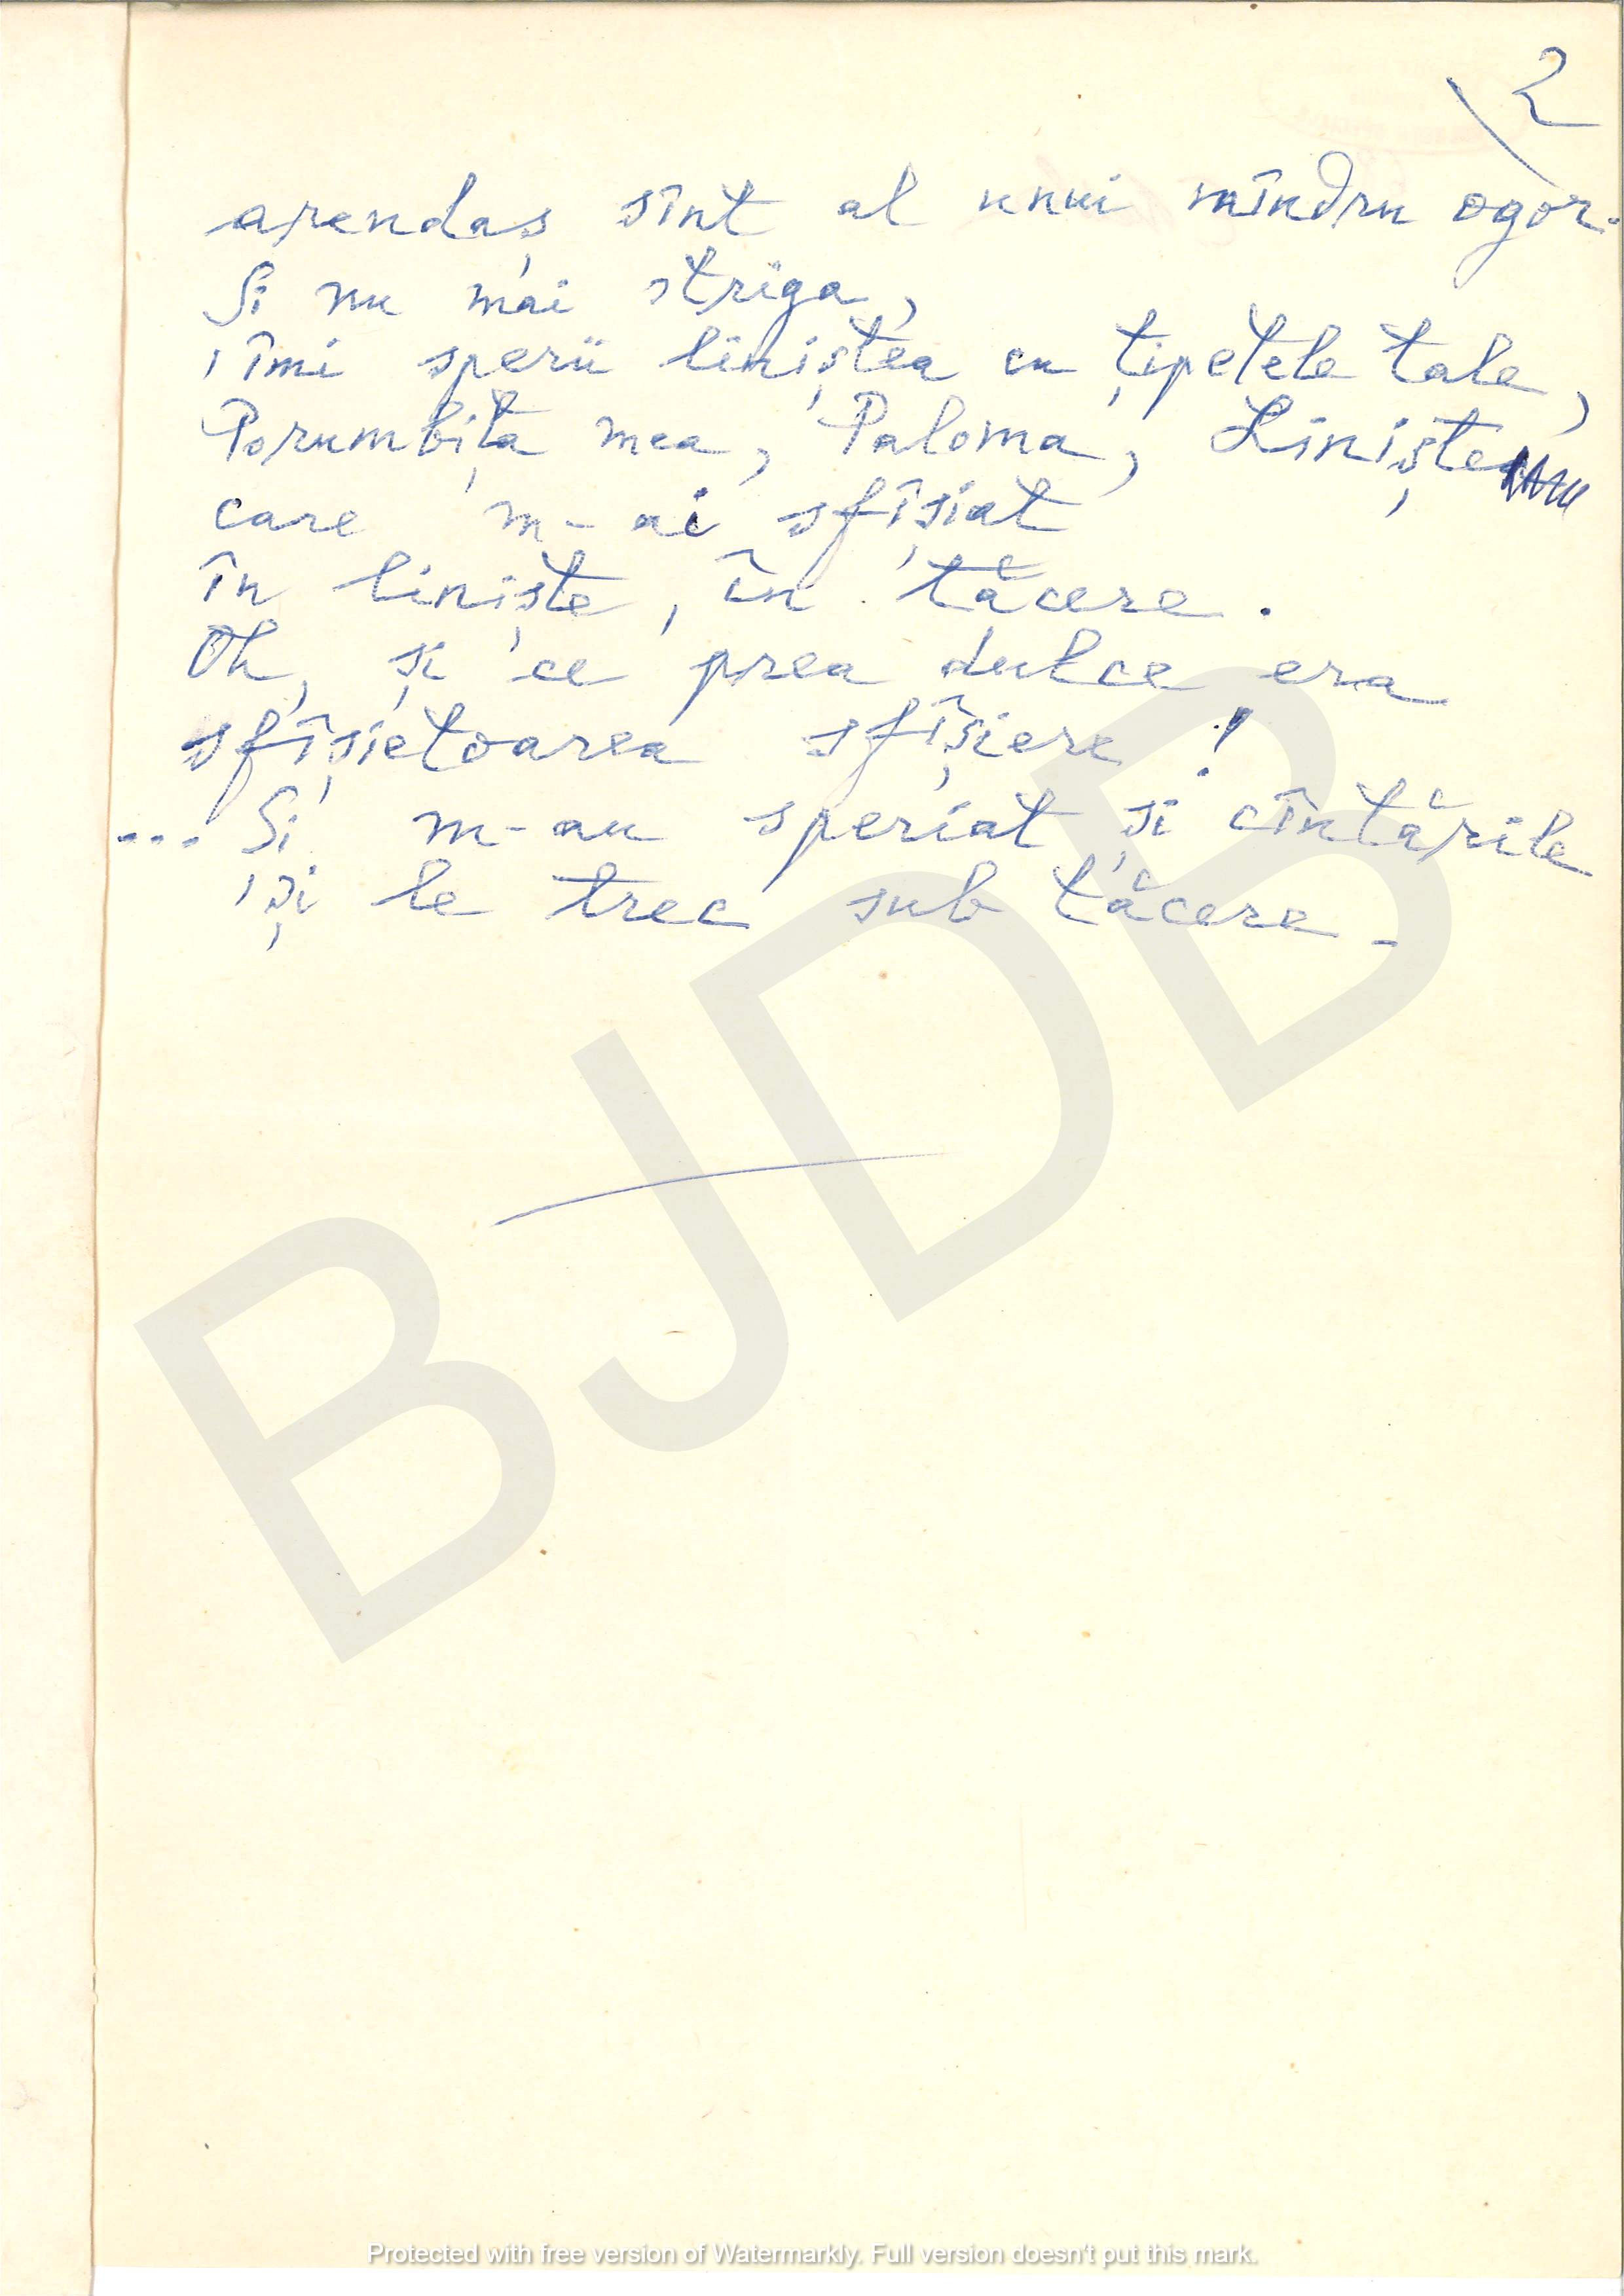 2
arendaș sînt al unui mîndru ogor.
Și nu mai striga,
îmi sperii liniștea cu țipetele tale,
Porumbița mea, Paloma, Liniște
care m-ai sfîșiat
în liniște, în tăcere.
Oh, și ce prea dulce era
sfîșietoarea sfîșiere!
... Și m-au speriat și cîntările
și le trec sub tăcere.
BJDB
Protected with free version of Watermarkly. Full version doesn't put this mark.